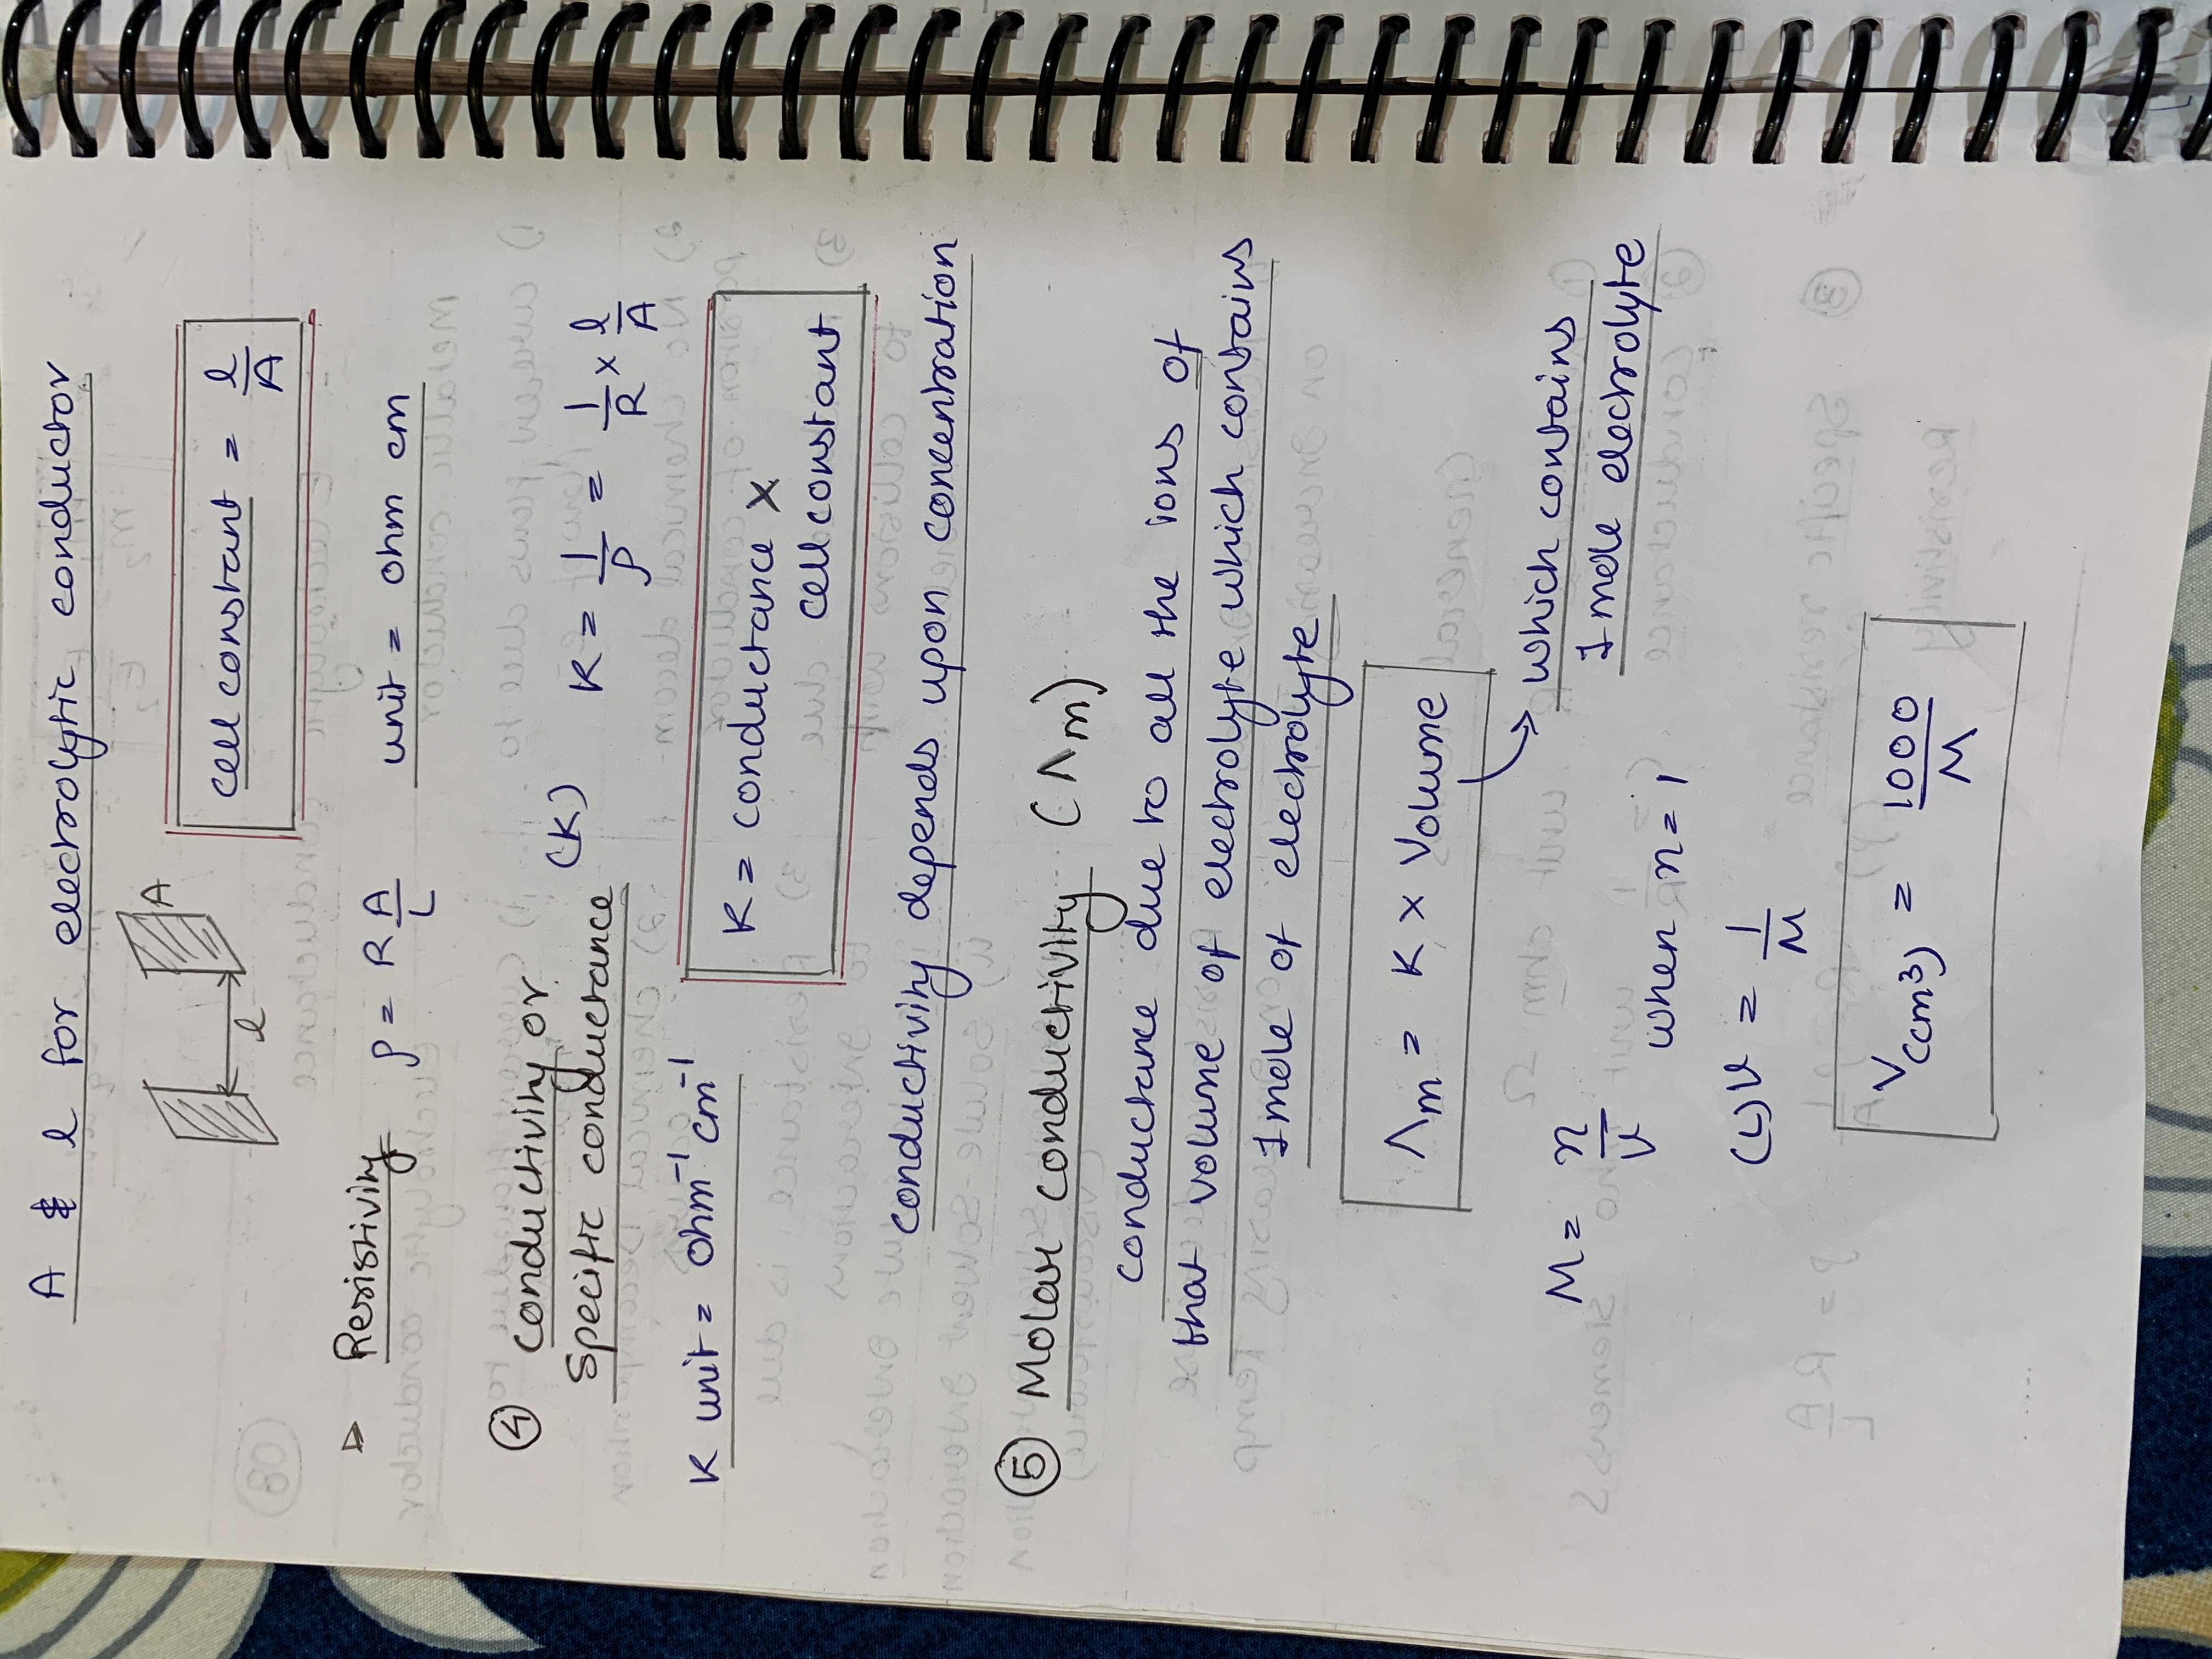 A & l for electrolytic conductor
A
l
cell constant = l/A
▷ Resistivity ρ = R A/L unit = ohm cm
④ Conductivity or
Specific conductance (K) K = 1/ρ = 1/R × l/A
K unit = ohm⁻¹ cm⁻¹
K = conductance ×
cell constant
conductivity depends upon concentration
⑤ Molar conductivity (Λm)
conductance due to all the ions of
that volume of electrolyte which contains
1 mole of electrolyte
Λm = K × Volume
which contains
1 mole electrolyte
M = n/V
when n = 1
(L)V = 1/M
V(cm³) = 1000/M